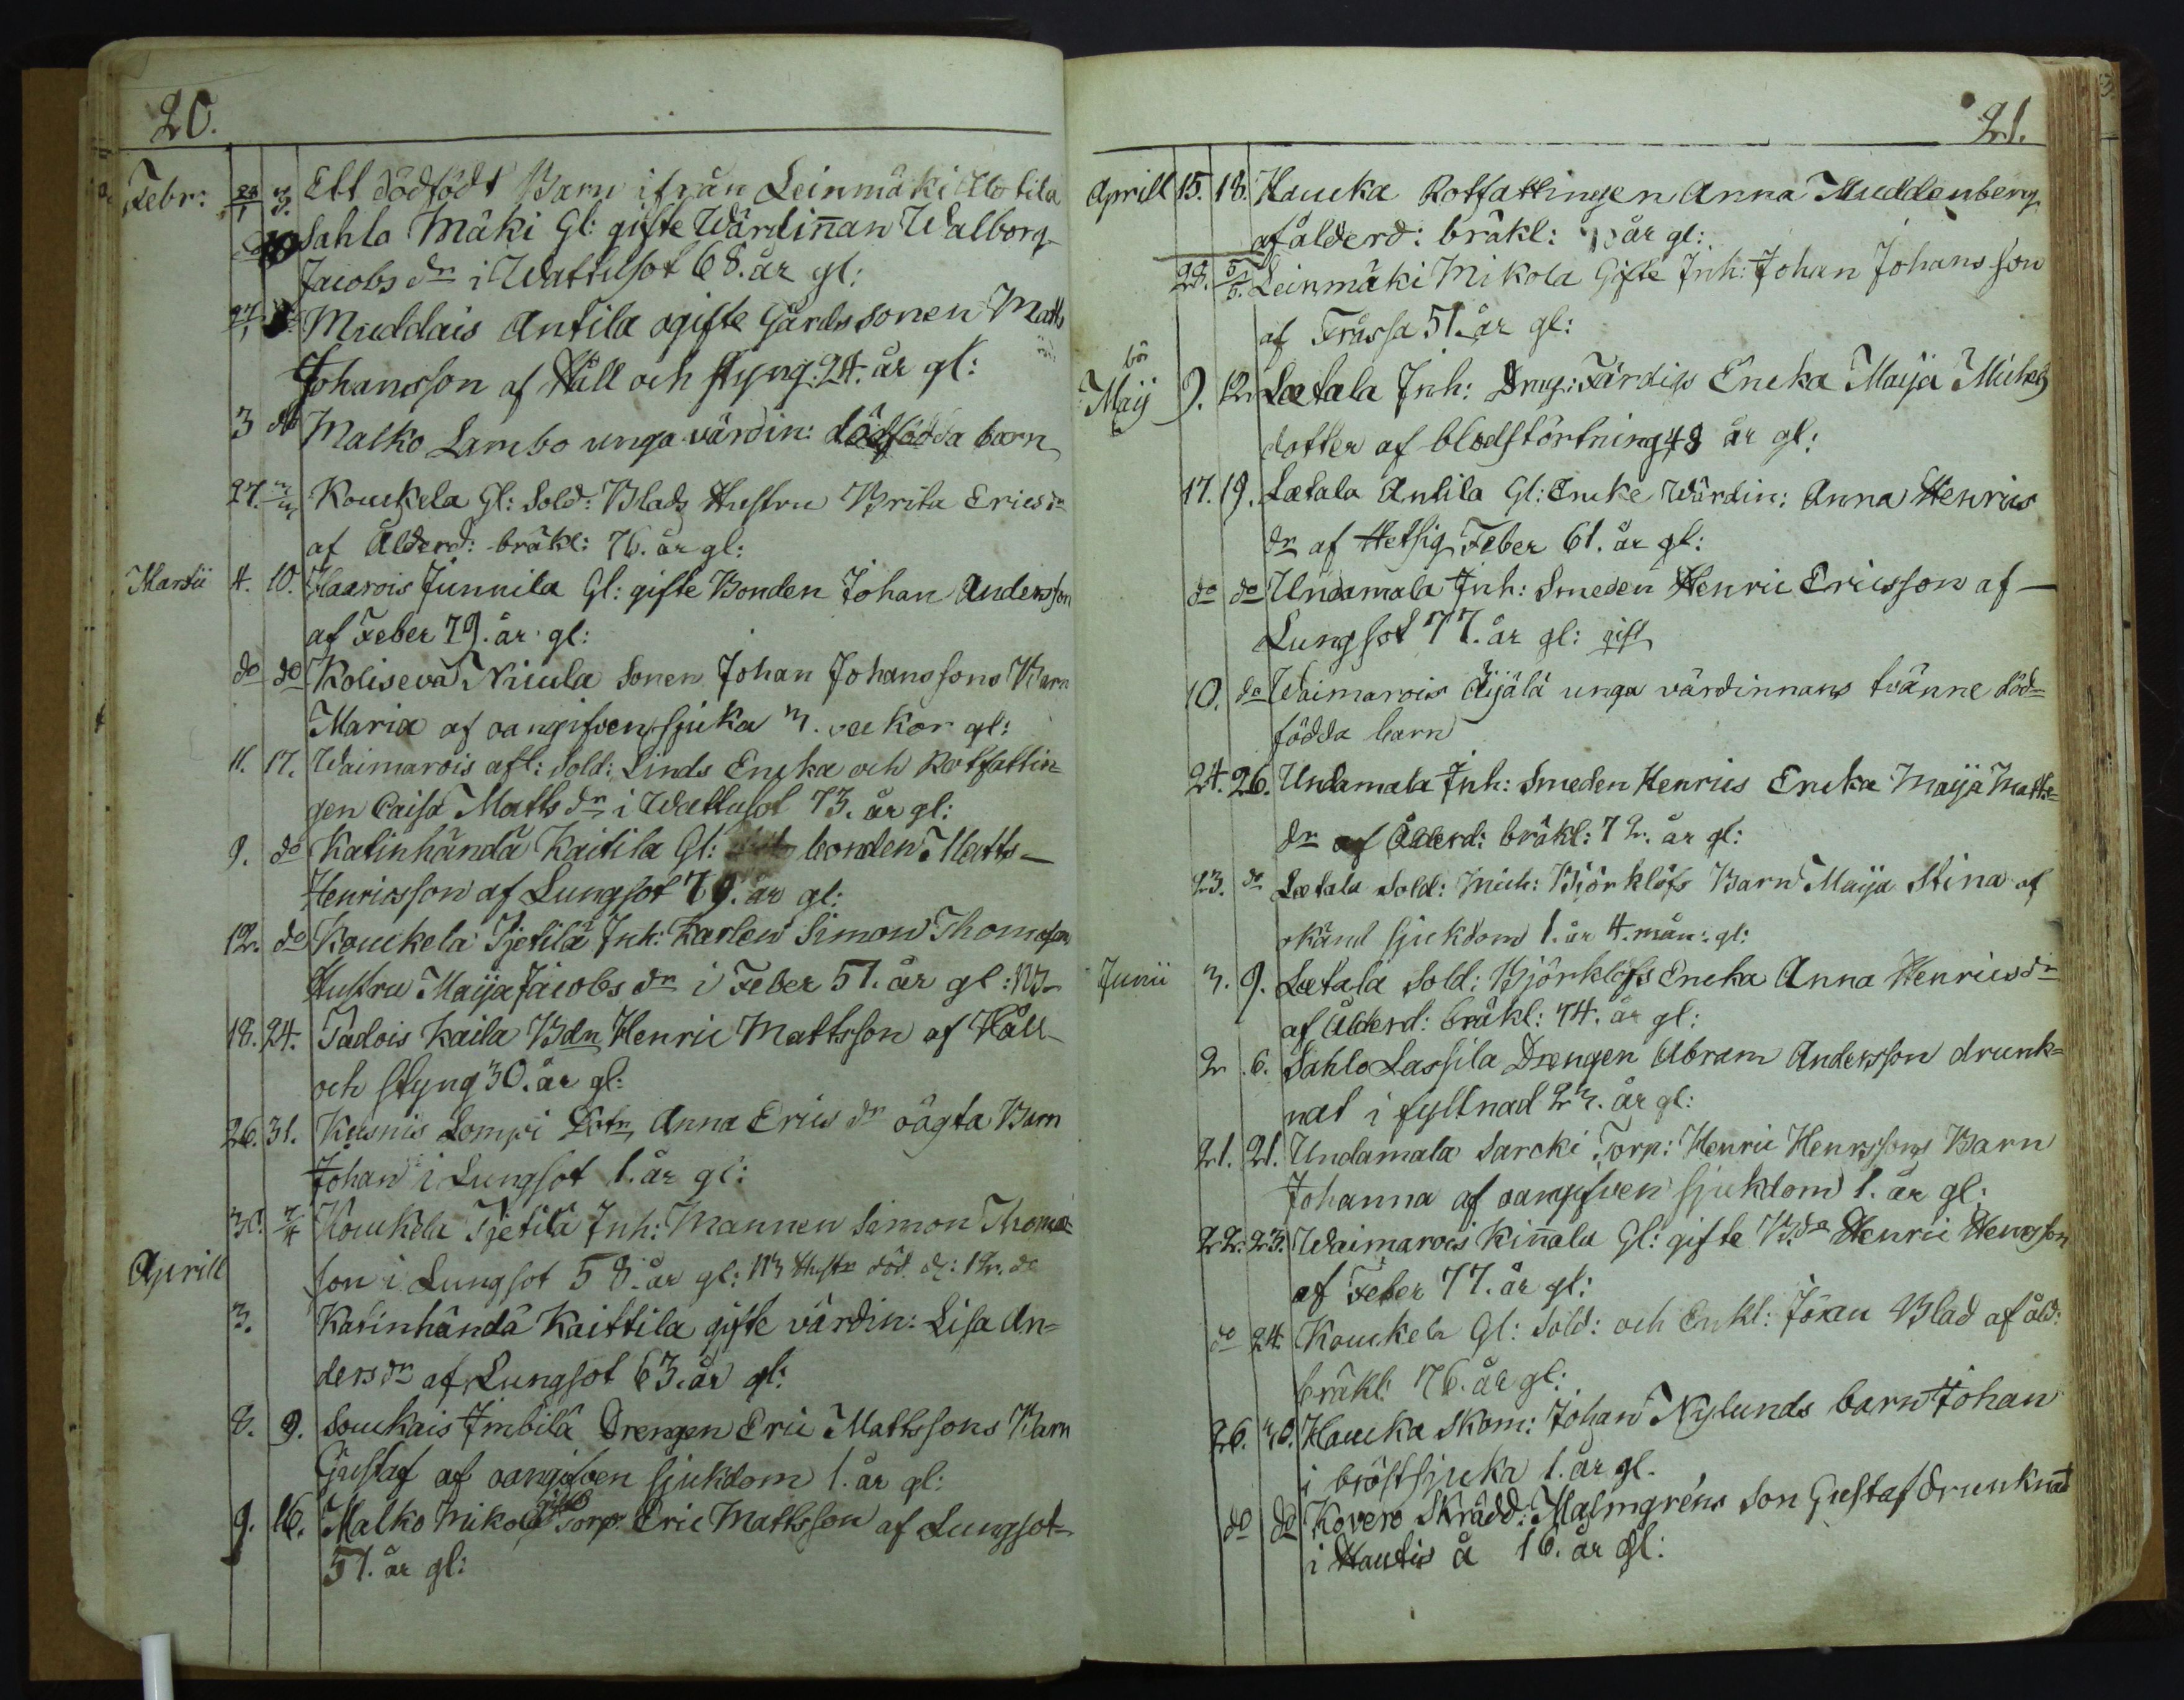 20.
Febr: 28/1 3. Ett dödfödt Barn ifrån Leinmäki Abo tila
10 Sahlo Mäki Gl: gifte Wärdin̄an Walborg
Jacobs dr i Wattusot 68. år gl:
27/1 Muddais Antila ogifte Gårds sonen Matts
Johansson af Håll och styng: 24. år gl:
3 do Malko Lambo unga värdin: dödfödda barn
27. 3/3 Kouckela Gl: Sold: Blads Hustru Brita Erics dr
af Ålderd: bräkl: 76. år gl:
Martii 4. 10. Haarois Junnila Gl: gifte Bonden Johan Andersson
af Feber 79. år gl:
do do Koliseva Nicula Sonen Johan Johanssons Barn
Maria af oangifven sjuka 3. veckor gl:
11. 17. Waimarois afl: Sold: Linds Encka och Rotfattin=
gen Caisa Matts dr i Wattusot 73. år gl:
9. do Katinhändä Kaitila Gl: bonden Matts
Henricsson af Lungsot 79. år gl:
12. do Kouckela Tjetilä Inh: Karlen Simon Thomasson
Hustru Maija Jacobs dr i Feber 51. år gl: NB
18. 24. Tadois Kaila Bdn Henric Mattsson af Håll
och styng 30. år gl:
26. 31. Kusnis Lompi Dotn Anna Erics dr oägta Barn
Johan i Lungsot 1. år gl:
30. 7/4 Kouckela Tjetilä Inh: Mannen Simon Thoma=
Aprill son i Lungsot 58. år gl: NB Hustr död d: 12. do
3. Katinhändä Kaittila gifte värdin: Lisa An=
ders dr af Lungsot 63. år gl:
8. 9. Souckais Imbilä Drengen Eric Mattssons Barn
Gustaf af oangifven sjukdom 1. år gl:
9. 16. Malko Mikola gifte Torp: Eric Mattsson af Lungsot
51. år gl:
21.
Aprill 15. 18. Haucka Rotfattingen Anna Muddenberg
af ålderd: bräkl: år gl:
28. 5/5. Leinmäki Mikola Gifte Inh: Johan Johansson
af Frässa 51. år gl:
Maij 9. 12. Lætala Inh: Drag: Färdigs Encka Maija Michels
dotter af blodstörtning 48 år gl:
17. 19. Lætala Antila Gl: Encke Wärdin: Anna Henrics
dr af Hetsig Feber 61. år gl:
do do Undamala Inh: Smeden Henric Ericsson af
Lungsot 77. år gl: gift
10. do Waimarois Äijälä unga värdinnans tvänne död=
födda barn
24. 26. Undamala Inh: Smeden Henrics Encka Maija Matts=
dr af Ålderd: bräkl: 72. år gl:
23. do Lætala Sold: Mich: Björklöfs Barn Maija Stina af
okänd sjukdom 1. år 4. mån: gl:
Junii 3. 9. Lætala Sold: Björklöfs Encka Anna Henrics dr
af Ålderd: bräkl: 74. år gl:
2. 6. Sahlo Lassila Drengen Abram Andersson drunk=
nat i fyllnad 23. år gl:
21. 21. Undamala Sarcki Torp: Henric Henrssons Barn
Johanna af oangifven sjukdom 1. år gl:
22. 23. Waimarois Kin̄ala Gl: gifte Bda Henric Henrsson
af Feber 77. år gl:
do 24. Kouckela Gl: Sold: och Enkl: Jöran Blad af åld:
bräkl: 76. år gl:
26. 30. Haucka Skom: Johan Nylunds barn Johan
i bröstsjuka 1. år gl.
do do Kovero Skrädd: Malmgréns Son Gustaf drunknat
i Hautis å 16. år gl: